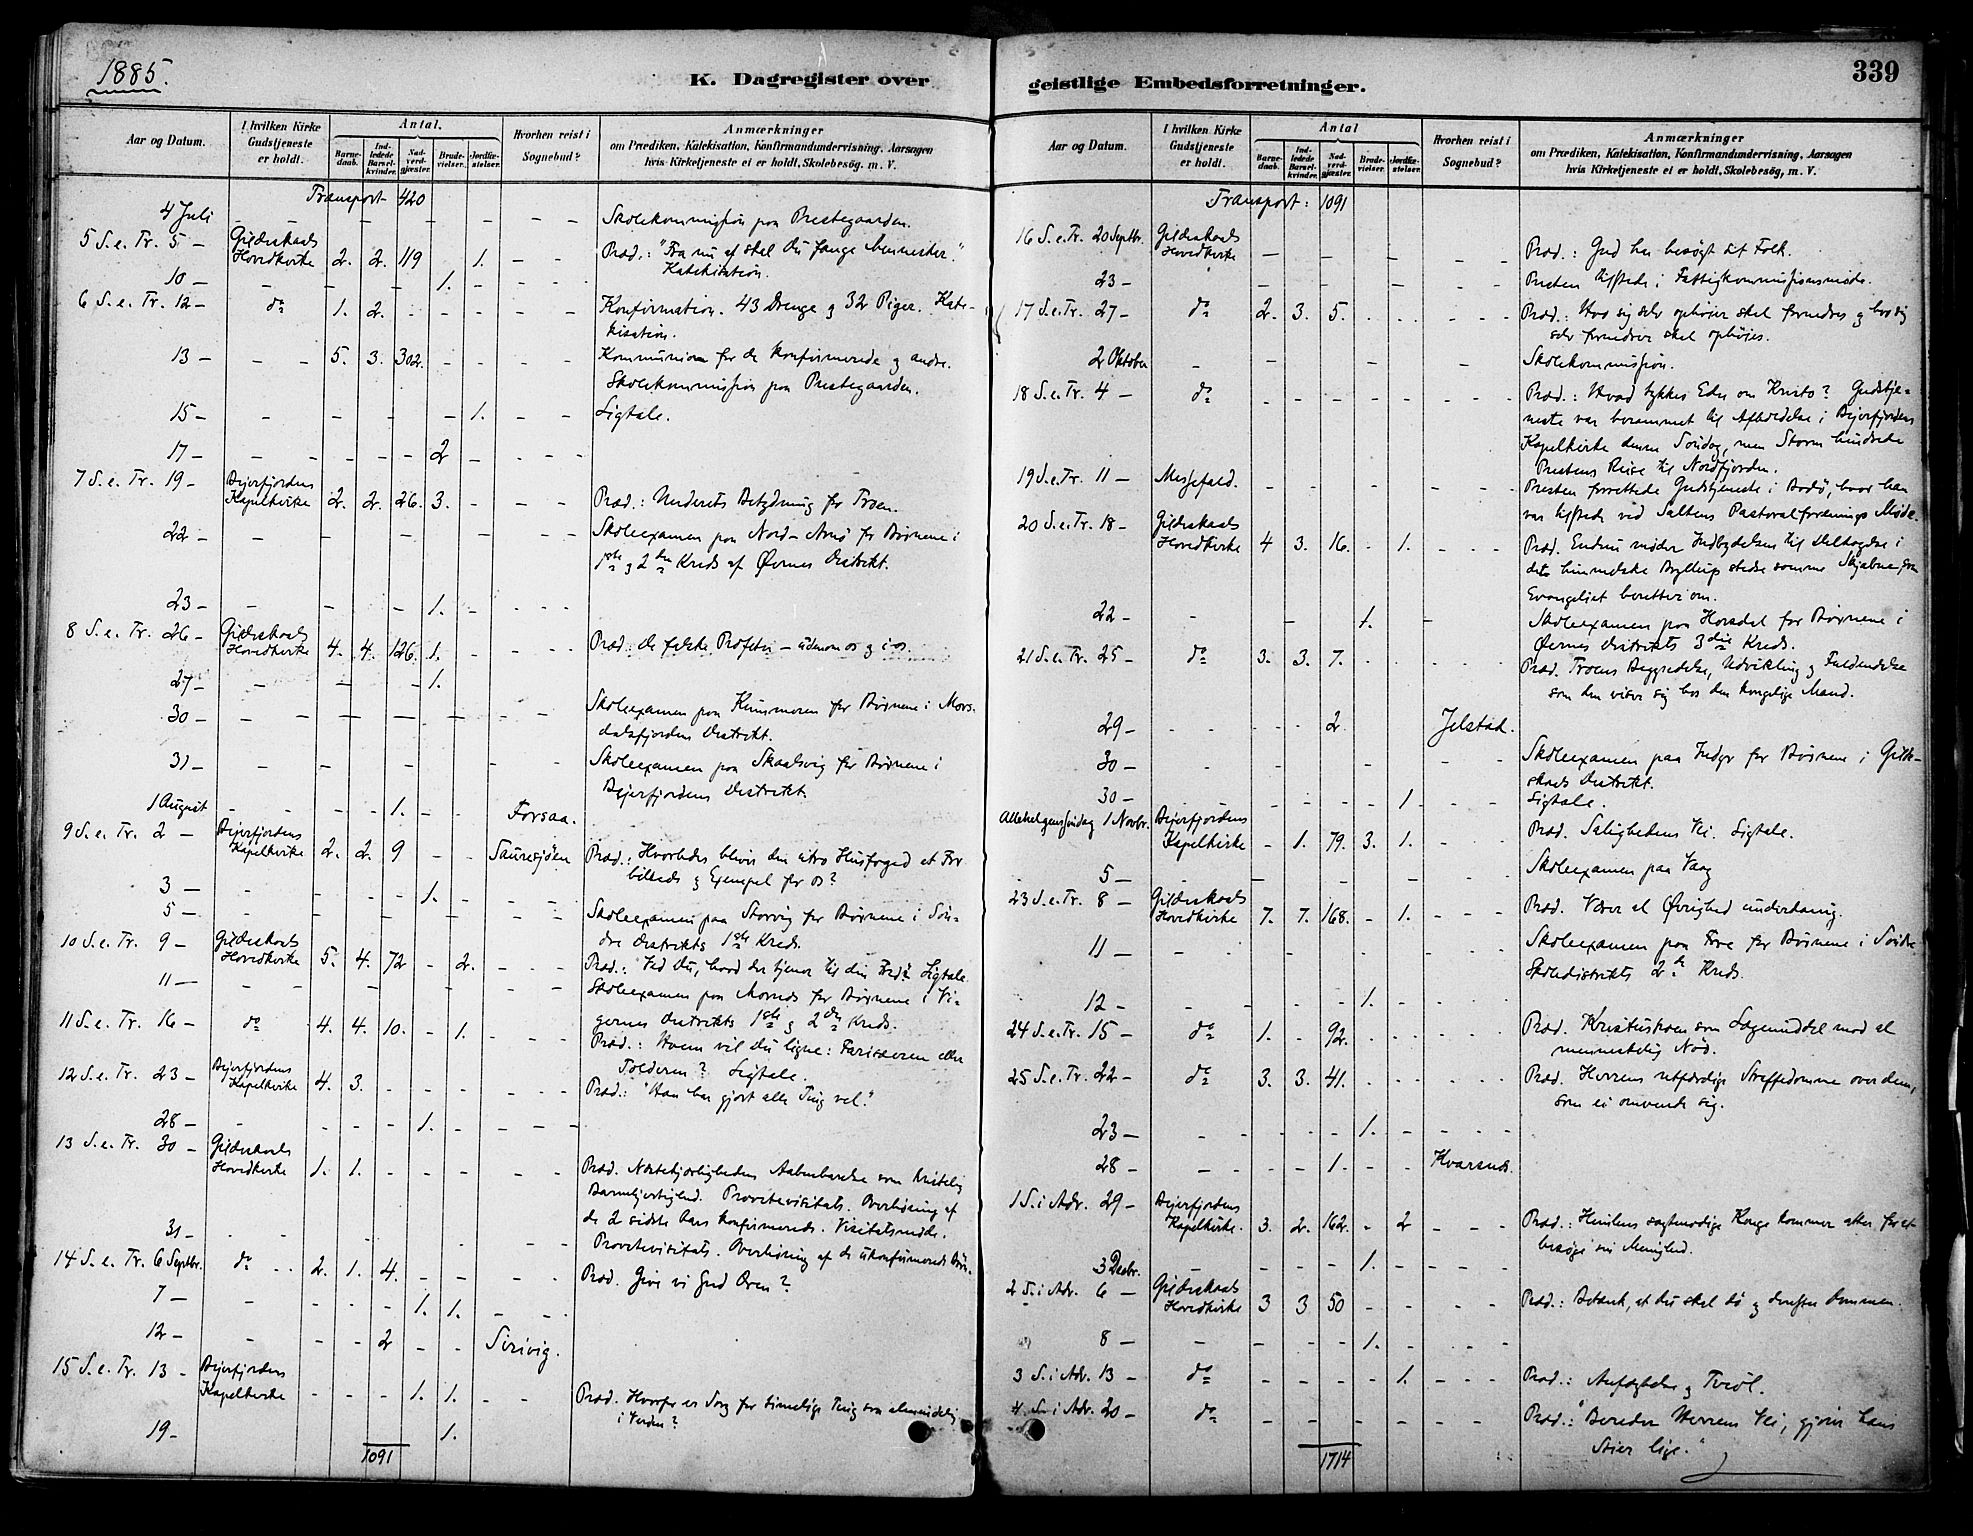 1885.
K. Dagregister over
Aar og Datum.
I hvilken Kirke Gudstjeneste er holdt.
Antal.
Barne-daab. Ind-ledede Barsel-kvinder. Nad-verd-gjæster. Brude-vielser. Jordfæ-stelser.
Hvorhen reist i Sognebud?
Anmærkninger
om Prædiken, Katekisation, Konfirmandundervisning, Aarsagen
hvis Kirketjeneste ei er holdt, Skolebesøg, m. V.
Transport 420
4 Juli - - - - - - - - Skolekommission paa Prestegaarden.
5 S. e. Tr. 5 - Gildeskaals Hovedkirke 2. 2. 119 1. - - Præd.: "Fra nu af skal Du fange Mennesker."
Katekisation.
10 - - - - - 1. - - -
6 S. e. Tr. 12 - do 1. 2. - - - - - Konfirmation. 43 Drenge og 32 Piger. Kate-
kisation.
13 - - - 5. 3. 302. - - - - Kommunion for de konfirmerede og andre.
Skolekommission paa Prestegaarden.
15 - - - - - - 1. - - Ligtale.
17 - - - - - - 2 - - - -
7 S. e. Tr. 19 - Bejerfjordens Kapelkirke 2. 2. 26. 3. - - - Præd.: Underets Betydning for Troen.
22 - - - - - - - - - Skoleexamen paa Nord-Arnø for Børnene i
1ste og 2den Kreds af Øvrnes Distrikt.
23 - - - - 1. - - - -
8 S. e. Tr. 26 - Gildeskaals Hovedkirke 4. 4. 126. 1. - - - - Præd.: De falske Profeter - udenom os og i os.
27 - - - - 1.
30 - - - - - - - - - Skoleexamen paa Kunnavoren for Børnene i Mors-
dalsfjordens Distrikt.
31 - - - - - - - Skoleexamen paa Skaalsvig for Børnene i
Bejerfjordens Distrikt.
1 August - - - 1. - - Forsaa.
9 S. e. Tr. 2 - Bejerfjordens Kapelkirke 2. 2. 9 - - Saursjøen Præd.: Hvorledes bliver den utro Husfoged et For-
billede og Exempel for os?
3 - - - - - 1. - - -
5 - - - - - - - - - Skoleexamen paa Storvig for Børnene i Søn-
dre Distrikts 1ste Kreds.
10 S. e. Tr. 9 - Gildeskaals Hovedkirke 5. 4. 72 - 2. - - - Præd.: "Ved Du, hvad der tjener til din Fred?" Ligtale.
11 - - - - - - - - Skoleexamen paa Mevnes for Børnene i Vi-
gernes Distrikts 1ste og 2den Kreds.
11 S. e. Tr. 16 - do 4. 4. 10. - 1. - - - Præd.: Hvem vil Du ligne: Farisæeren eller
Tolderen? Ligtale.
12 S. e. Tr. 23 - Bejerfjordens Kapelkirke 4. 3. - - - - - - Præd.: "Han har gjort alle Ting vel."
28 - - - - - 1. - - - -
13 S. e. Tr. 30 - Gildeskaals Hovedkirke 1. 1. - - - - - Præd. Næstekjærligheden Aabenbarelse som kristelig
Barmhjertighed. Provstevisitats. Overhøring af
de 2 sidste Aars konfirmerede. Visitatsmøde.
31 - - - - - Provstevisitats. Overhøring af de ukonfirmerede Børn.
14 S. e. Tr. 6 Septbr. do - - 2. 1. 4. - - - - Præd. Give vi Gud Æren?
7 - - - - - 1. 1. - - -
12 - - - - 2 - - Sørvig.
15 S. e. Tr. 13 - Bejerfjordens Kapelkirke - - - 1. 1. - - Præd. Hvorfor er Sorg for timelige Ting saa almindelig
i Verden?
19 - 1.
1091
geistlige Embedsforretninger.
339
Aar og Datum.
I hvilken Kirke Gudstjeneste er holdt.
Antal
Barne-daab. Ind-ledede Barsel-kvinder. Nad-verd-gjæster. Brude-vielser. Jordfæ-stelser.
Hvorhen reist i Sognebud?
Anmærkninger
om Prædiken, Katekisation, Konfirmandundervisning, Aarsagen
hvis Kirketjeneste ei er holdt, Skolebesøg, m. V.
Transport: 1091
16 S. e. Tr. 20 Septbr. Gildeskaals Hovedkirke - - - - - - Præd.: Gud har besøgt sit Folk.
23 - - - - - - - Presten tilstede i Fattigkommissionsmøde.
17 S. e. Tr. 27 - do 2. 3. 5. - - - - - Præd.: Hvo sig selv ophøier skal fornedres og hvo sig
selv fornedrer skal ophøies.
2 Oktober - - - - Skolekommission.
18 S. e. Tr. 4 - do - - - - - - - - Præd.: Hvad tykkes Eder om Kristo? Gudstje-
neste var berammet til Afholdelse i Bejerfjordens
Kapelkirke denne Søndag, men Storm hindrede
Prestens Reise til Nordfjorden.
19 S. e. Tr. 11 - Messefald. - - - - Presten forrettede Gudstjeneste i Bodø, hvor han
var tilstede ved Saltens Pastoralforenings Møde.
20 S. e. Tr. 18 - Gildeskaals Hovedkirke 4 3. 16. - 1. - - - Præd. Endnu møder Indbydelsen til Deltagelse i
det himmelske Bryllup stedse samme Skjæbne, som
Evangeliet beretter om.
22 - - - - 1. - Skoleexamen paa Horsdal for Børnene i
Øvrnes Distrikts 3die Kreds.
21 S. e. Tr. 25 - do 3. 3. 7. - - - - - Præd. Troens Begyndelse, Udvikling og Fuldendelse
som den viser sig hos den kongelige Mand.
29 - - - - - 2 Jelstad.
30 - - - - - - - Skoleexamen paa Indyr for Børnene i Gilde-
skaals Distrikt.
30 - - - - - 1 - - Ligtale.
Allehelgensøndag 1 Novbr. Bejerfjordens Kapelkirke - 1. 79. 3. 1. - - Præd. Salighedens Vei. Ligtale.
5 - - - - - - Skoleexamen paa Vaag
23 S. e. Tr. 8 - Gildeskaals Hovedkirke 7. 7. 168. - 1. - - - Præd. Værer al Øvrighed underdanig.
11 - - - - - - - - Skoleexamen paa Fore for Børnene i Søndre
Skoledistrikts 2de Kreds.
12 - - - - - 1. - - - -
24 S. e. Tr. 15 - do 1. - 92. - - - - - Præd. Kristustroen som Lægemiddel mod al
menneskelig Nød.
25 S. e. Tr. 22 - do 3. 3. 41. - - - - - Præd. Herrens retfærdige Straffedomme over dem,
som ei omvende sig.
23 - - - - - 1. - - - -
28 - - - - 1. - - Kvarsnes.
1 S. i Adv. 29 - Bejerfjordens Kapelkirke. 3. 2. 162. - 2 - - - Præd.: Himlens sagtmodige Konge kommer atter for at
besøge sin Menighed.
3 Decbr. - - - - 1. - - - -
2 S. i Adv. 6 - Gildeskaals Hovedkirke 3 3 50 - - - - Præd.: Betænk, at Du skal dø og derefter Dommen.
8 - - - - - 1. - - -
3 S. i Adv. 13 - do - - - - 1. - - - Præd.: Anfægtelse og Tvivl.
4. S. i Adv. 20 - do - - - - - - - Præd.: "Bereder Herrens Vei, gjører hans
Stier lige."
1714